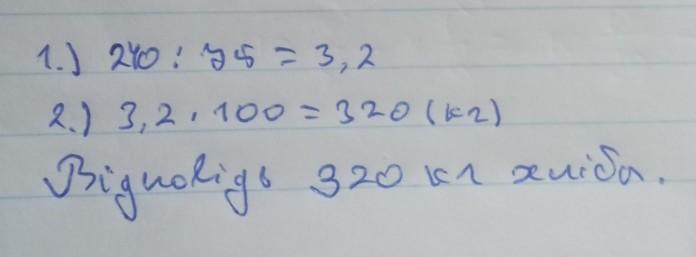 1.) 240 : 75 = 3,2
2.) 3,2 · 100 = 320 (кг)
Відповідь 320 кг хліба.